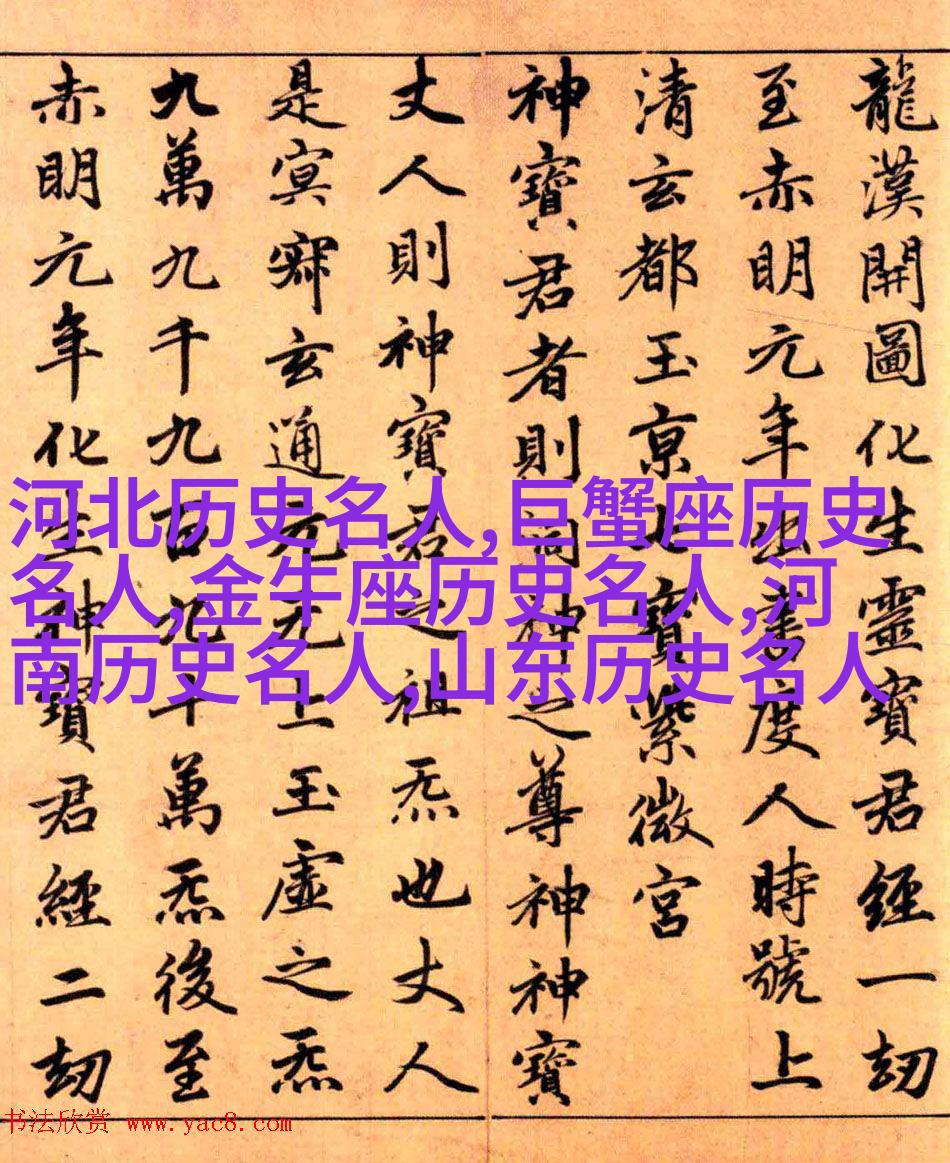 龍漢開圖化生靈寶君經一劫
至赤明元年出書度人時號上
清玄都玉京七寶紫微宮
神寶君者則洞神之尊神神寶
丈人則神寶君之祖炁也丈人
是冥寂玄通元无上玉虛之炁
九萬九千九百九十萬炁後至
赤明元年化生神寶君經二劫
河北历史名人,巨蟹座历史
名人,金牛座历史名人,河
南历史名人,山东历史名人
书法欣赏 www.yac8.com